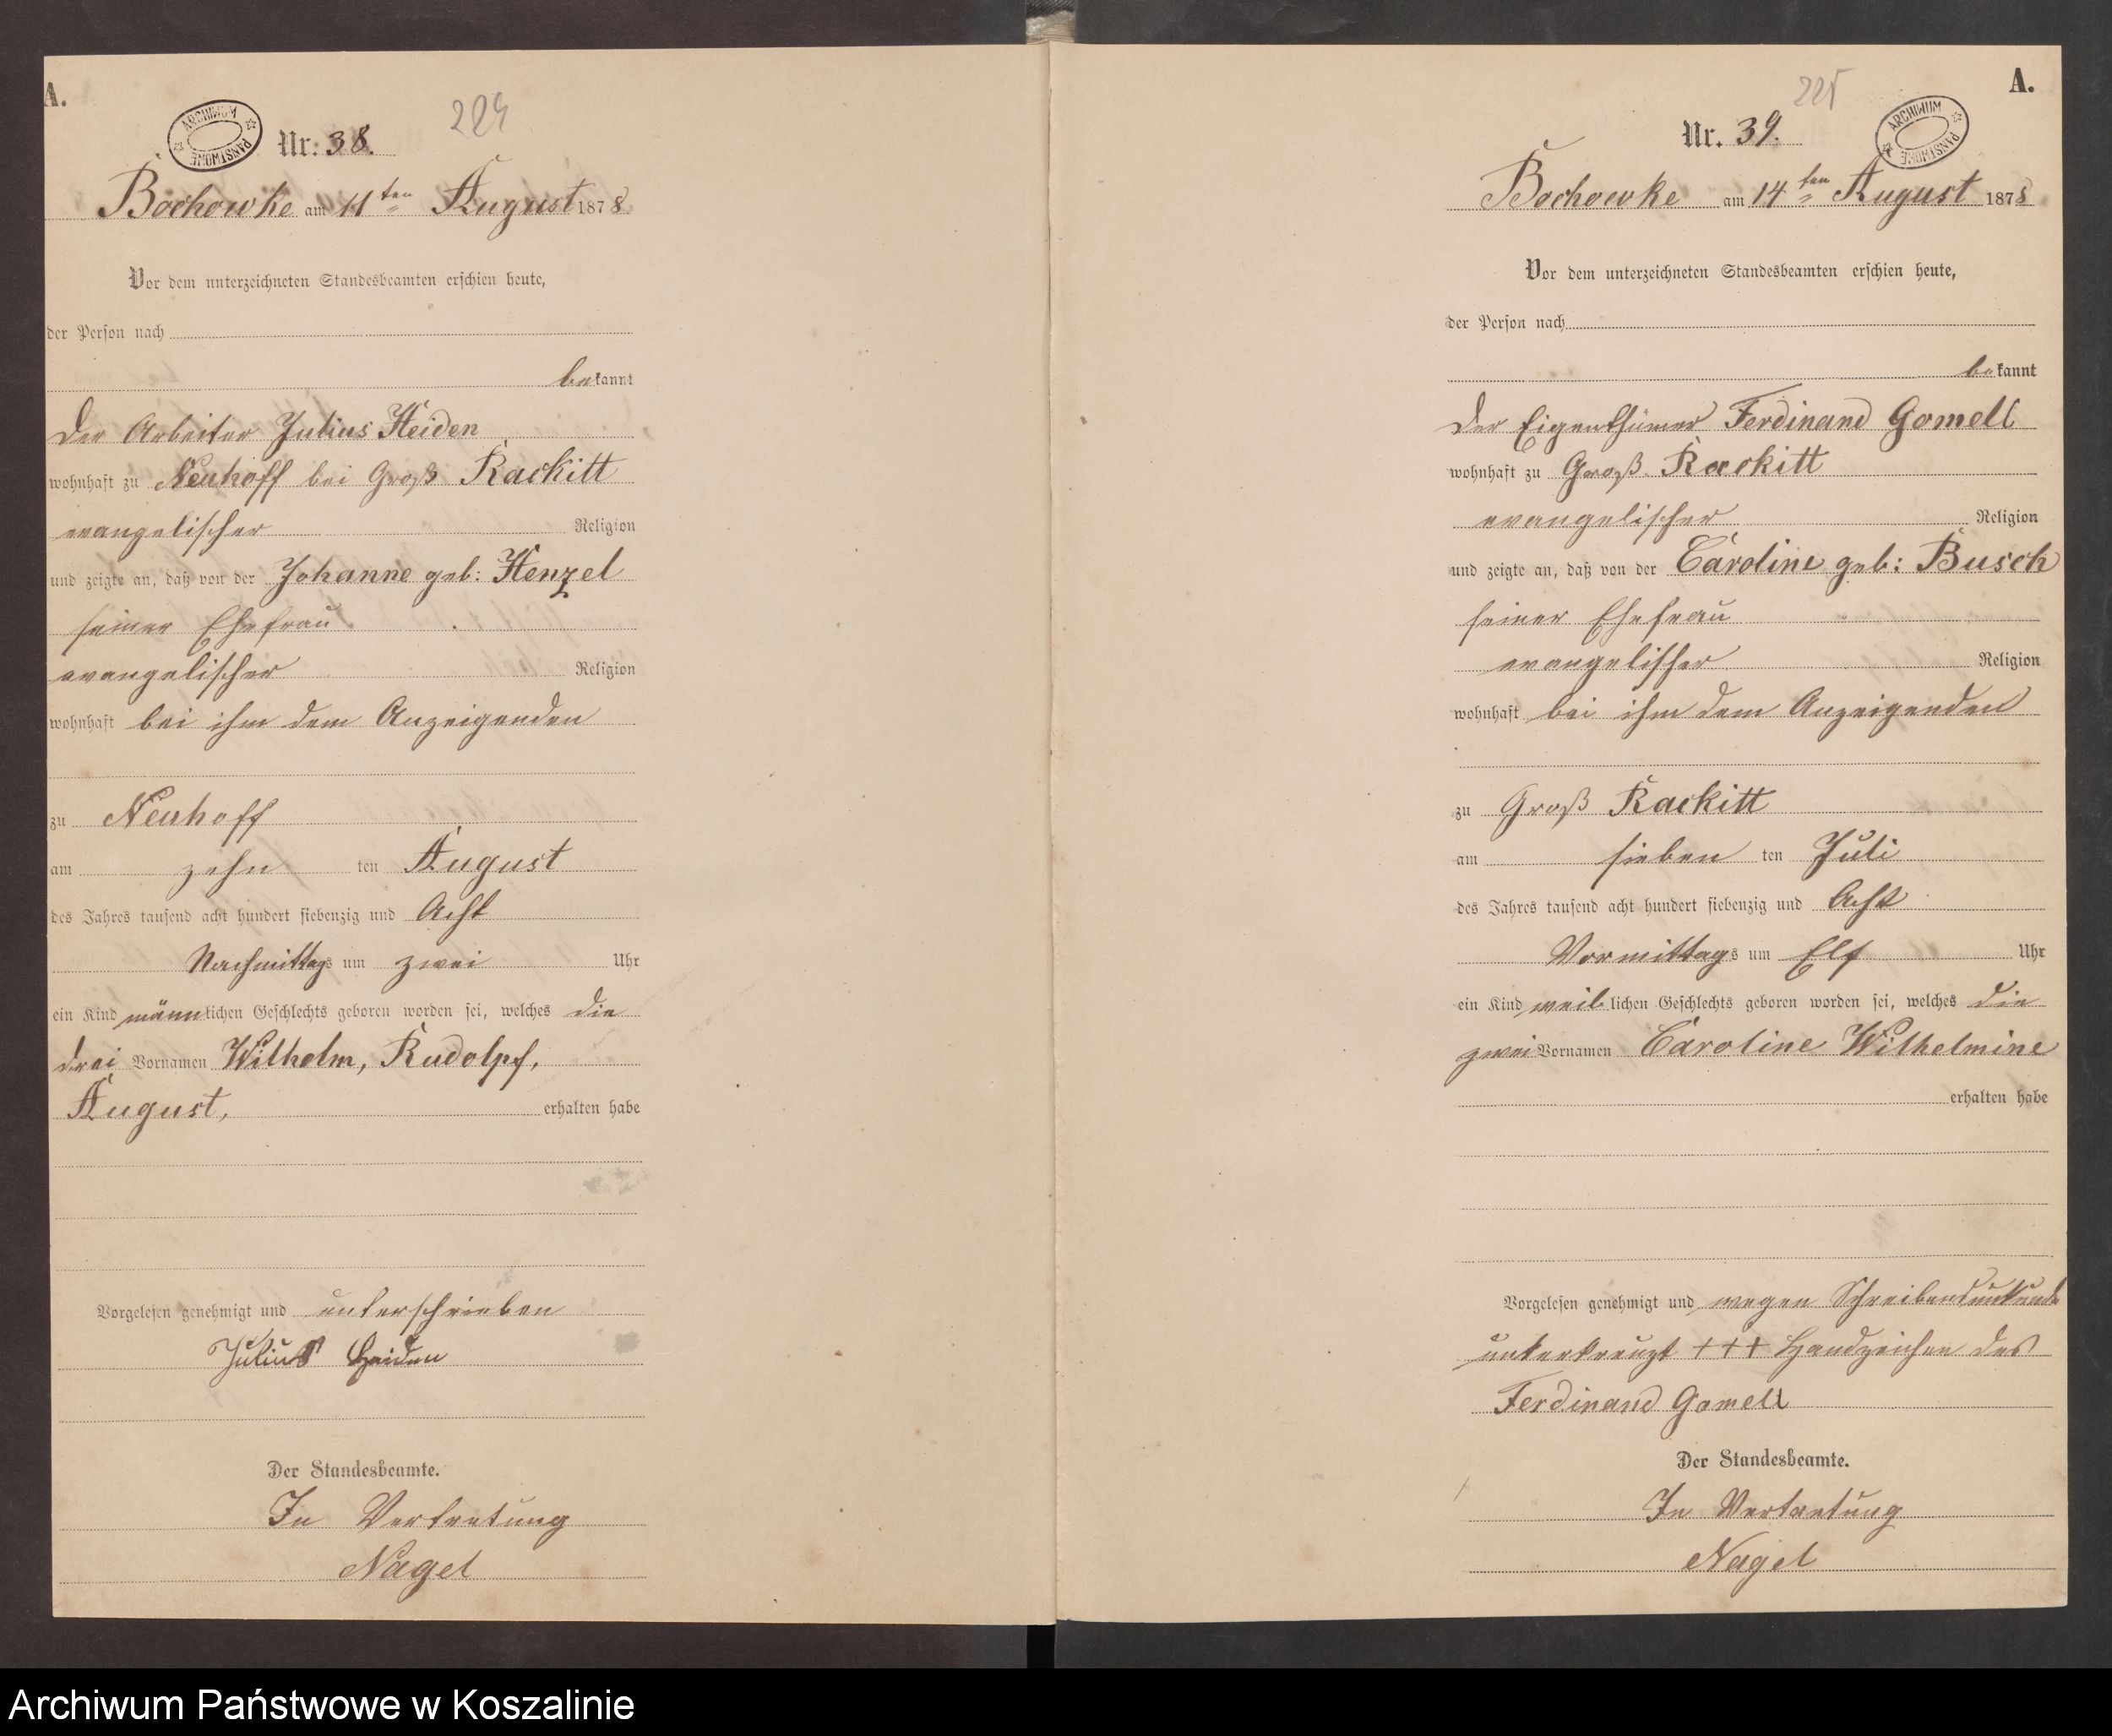 A.
ARCHIWUM PAŃSTWOWE
224
Nr: 38.
Bochowke am 11ten August 1878
Vor dem unterzeichneten Standesbeamten erschien heute,
der Person nach
bekannt
der Arbeiter Julius Heiden
wohnhaft zu Neuhoff bei Groß Rackitt
evangelischer Religion
und zeigte an, daß von der Johanne geb: Henzel
seiner Ehefrau
evangelischer Religion
wohnhaft bei ihm dem Anzeigenden
zu Neuhoff
am zehn ten August
des Jahres tausend acht hundert siebenzig und Acht
Nachmittags um zwei Uhr
ein Kind männlichen Geschlechts geboren worden sei, welches die
drei Vornamen Wilhelm, Rudolpf,
August, erhalten habe
Vorgelesen genehmigt und unterschrieben
Julius Heiden
Der Standesbeamte.
In Vertretung
Nagel
225
A.
Nr. 39.
ARCHIWUM PAŃSTWOWE
Bochowke am 14ten August 1878
Vor dem unterzeichneten Standesbeamten erschien heute,
der Person nach
bekannt
der Eigenthümer Ferdinand Gomell
wohnhaft zu Groß Rackitt
evangelischer Religion
und zeigte an, daß von der Caroline geb: Busch
seiner Ehefrau
evangelischer Religion
wohnhaft bei ihm dem Anzeigenden
zu Groß Rackitt
am sieben ten Juli
des Jahres tausend acht hundert siebenzig und Acht
Vormittags um Elf Uhr
ein Kind weiblichen Geschlechts geboren worden sei, welches die
zwei Vornamen Caroline Wilhelmine
erhalten habe
Vorgelesen genehmigt und wegen Schreibensunkunde
unterkreuzt +++ Handzeichen des
Ferdinand Gomell
Der Standesbeamte.
In Vertretung
Nagel
Archiwum Państwowe w Koszalinie